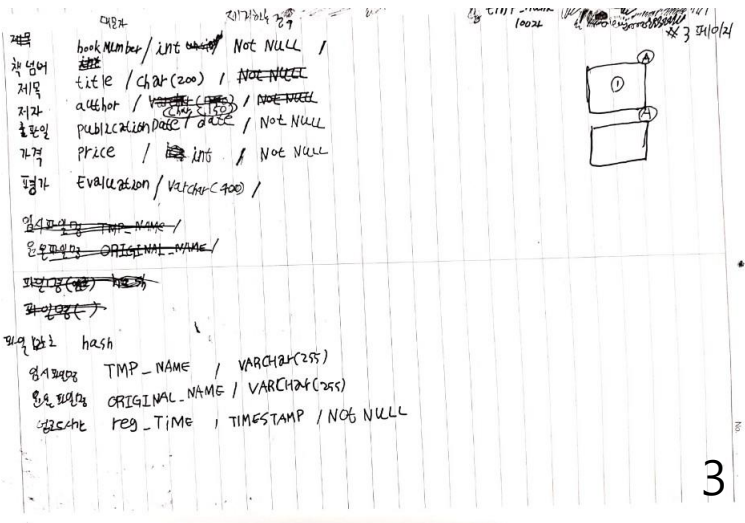 대문자
제목
100자
※ 3 페이지
책 넘버 bookNumber / int Not NULL /
제목 title / char(200) / Not NULL
저자 author / char(150) / Not NULL
출판일 publicationDate / date / Not NULL
가격 price / int / Not NULL
평가 Evaluation / Varchar(400) /
임시파일명 TMP_NAME /
원본파일명 ORIGINAL_NAME /
파일명
파일명( )
파일암호 hash
임시파일명 TMP_NAME / VARChar(255)
원본파일명 ORIGINAL_NAME / VARChar(255)
업로드시간 reg_TiME / TIMESTAMP / NOt NULL
A
1
A
3